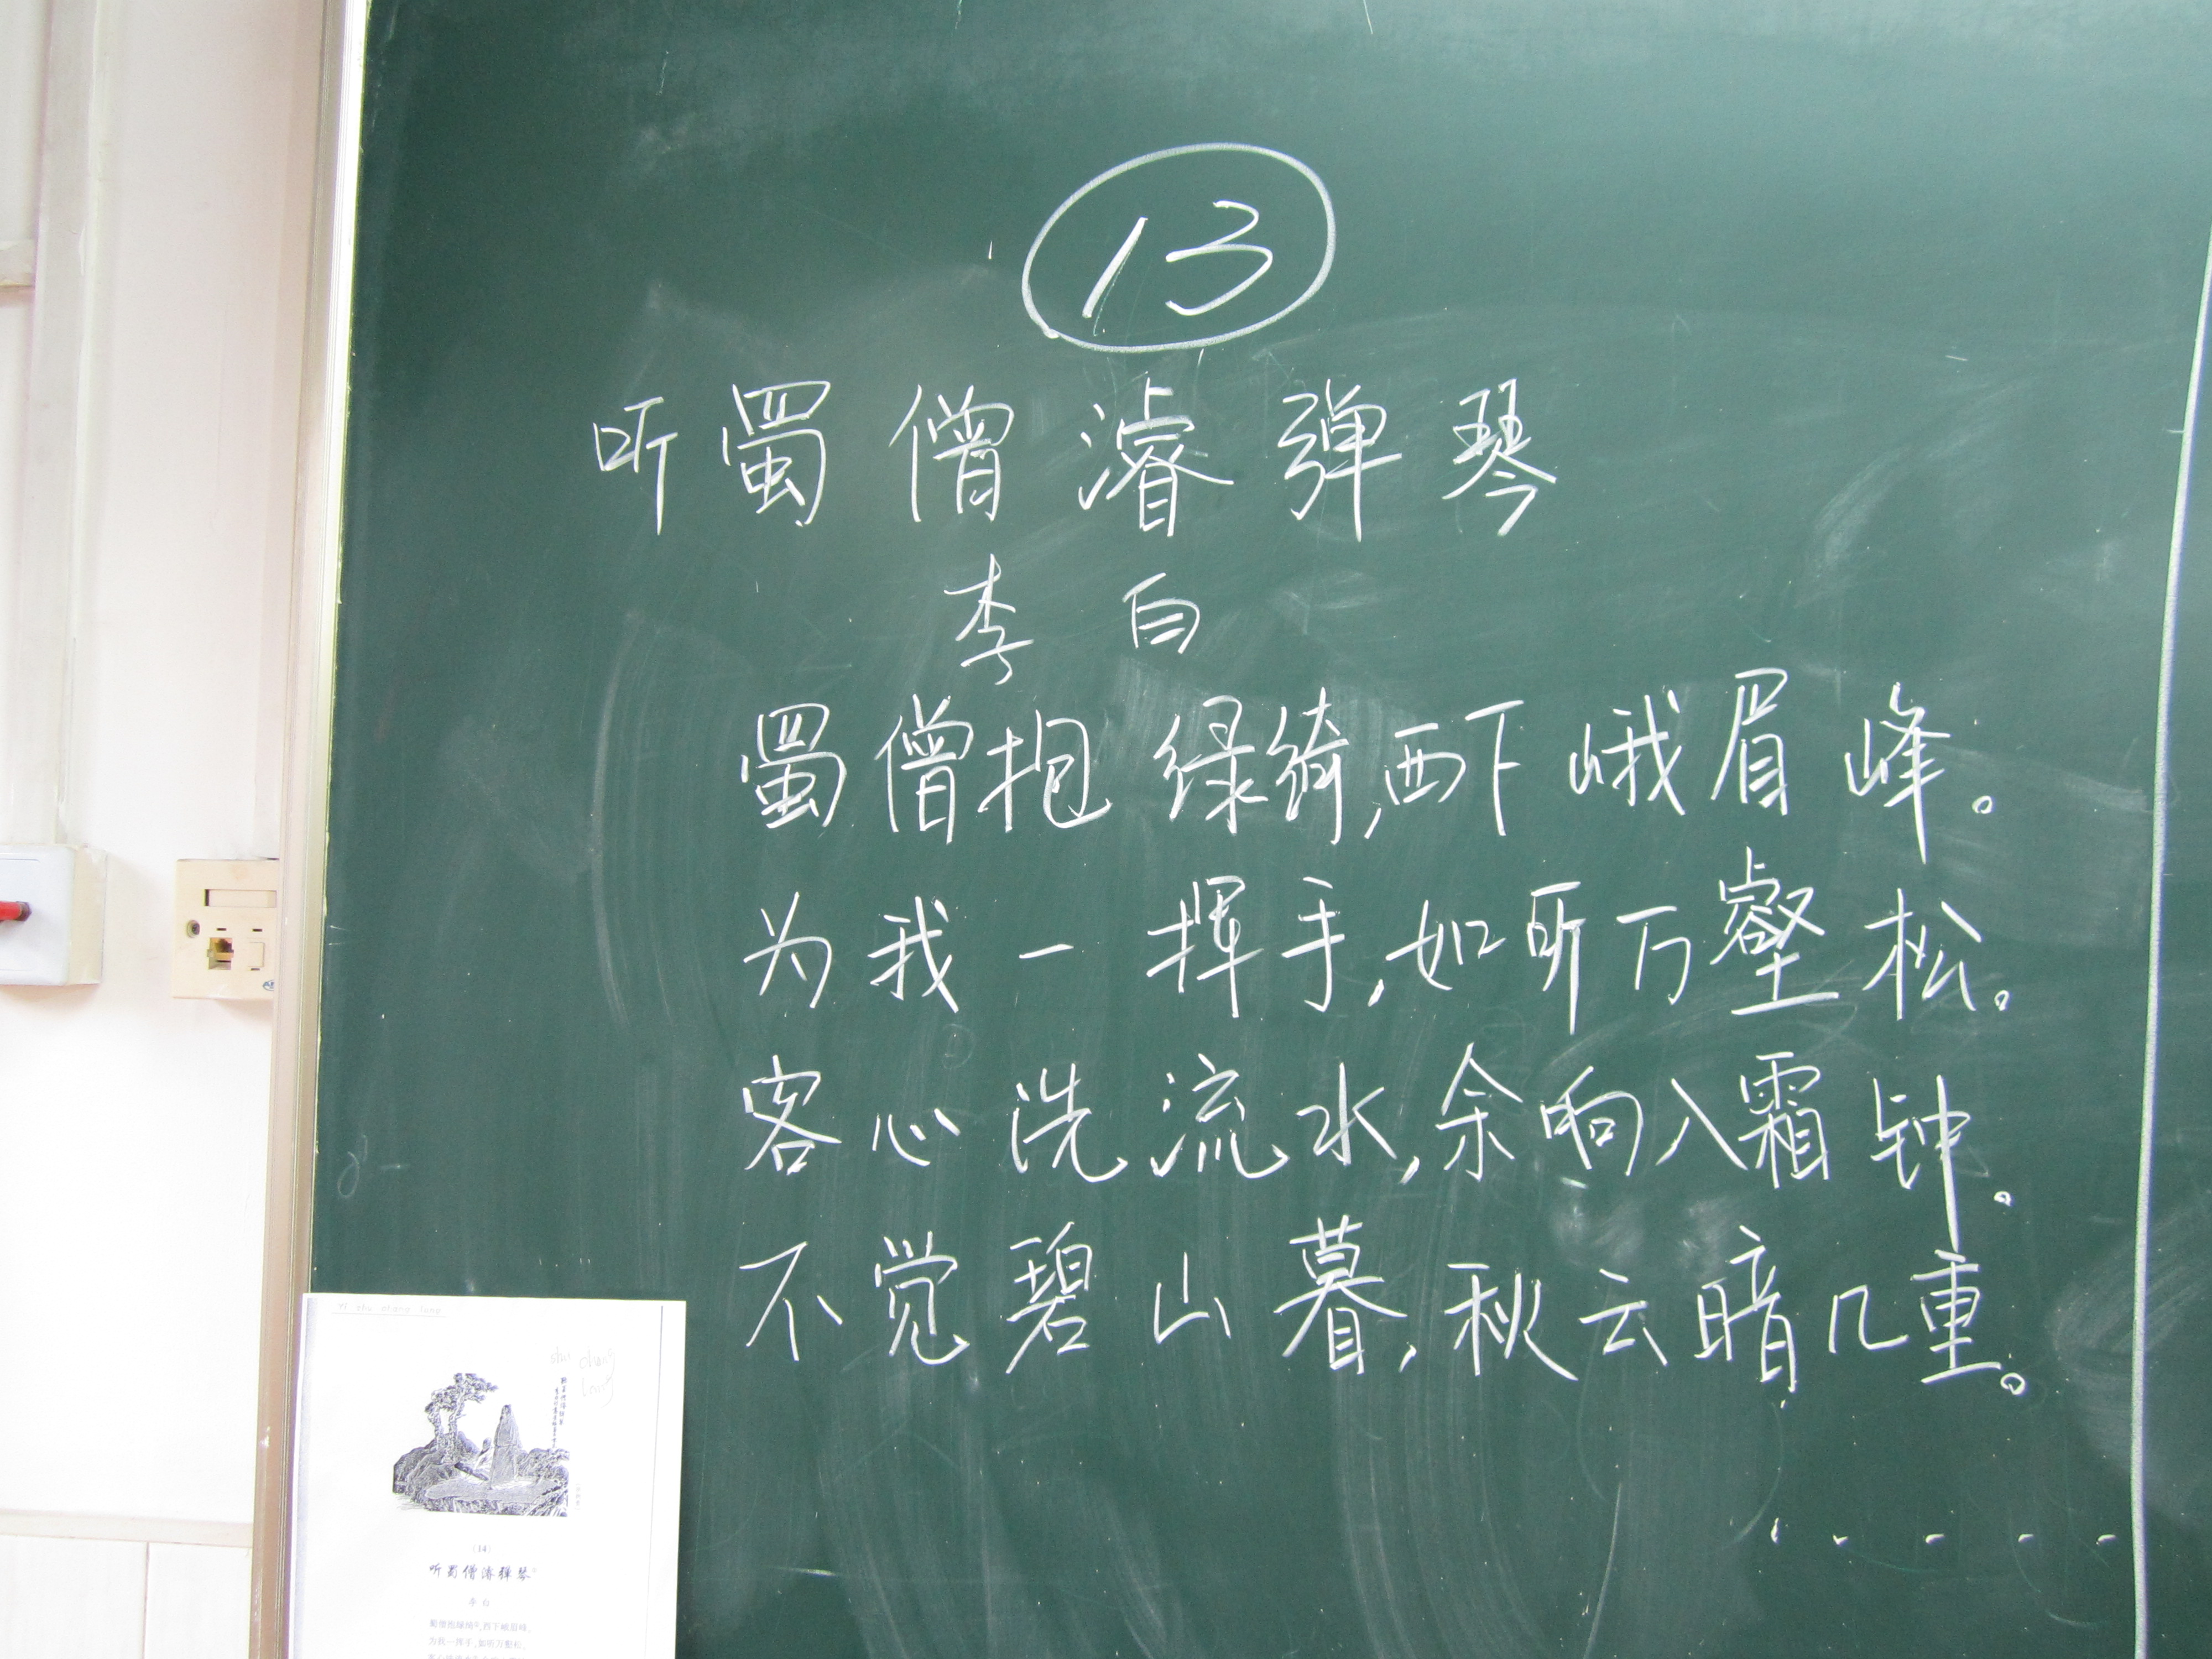 13
听蜀僧濬弹琴
李白
蜀僧抱绿绮,西下峨眉峰。
为我一挥手,如听万壑松。
客心洗流水,余响入霜钟。
不觉碧山暮,秋云暗几重。
(14)
听蜀僧濬弹琴
李白
蜀僧抱绿绮,西下峨眉峰。
为我一挥手,如听万壑松。